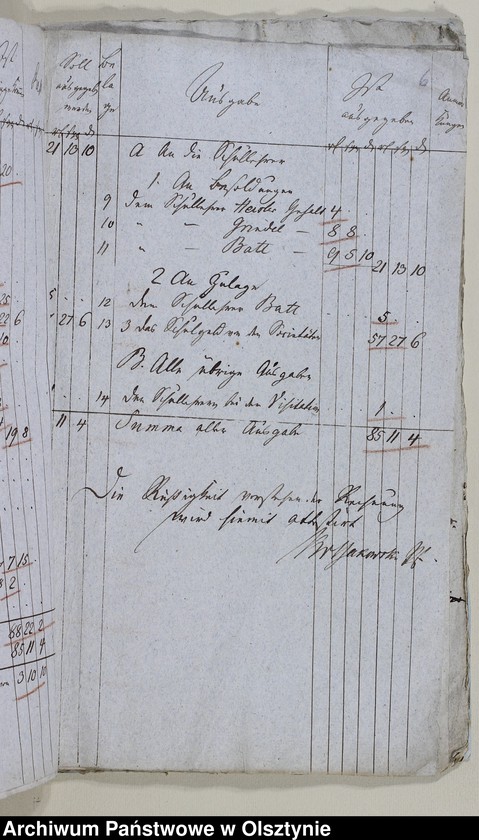 Soll
ausgegeben
werden
rt sg d
Be
la
ge
Ausgabe
Ist
ausgegeben
rt sg d rt sg d
6
Anmer
kungen
21 13 10 A An die Schullehrer
1. An Besoldungen
9 dem Schullehrer Gehalt 4 . .
10 " — Grindel — 8 8 .
11 " — Batt — 9 5 10
21 13 10
2 An Zulage
5 . . 12 dem Schullehrer Batt 5 . .
27 6 13 3 das Schulgeld von den Societäten 57 27 6
B. Alle übrige Ausgaben
1 . . 14 den Schullehrern bei der Visitation 1 . .
11 4 Summa aller Ausgabe 85 11 4
Die Richtigkeit vorstehender Rechnung
wird hiemit attestirt
20
25
22 6
10
19 8
7 15
8 2
88 22 2
85 11 4
3 10 10
Archiwum Państwowe w Olsztynie